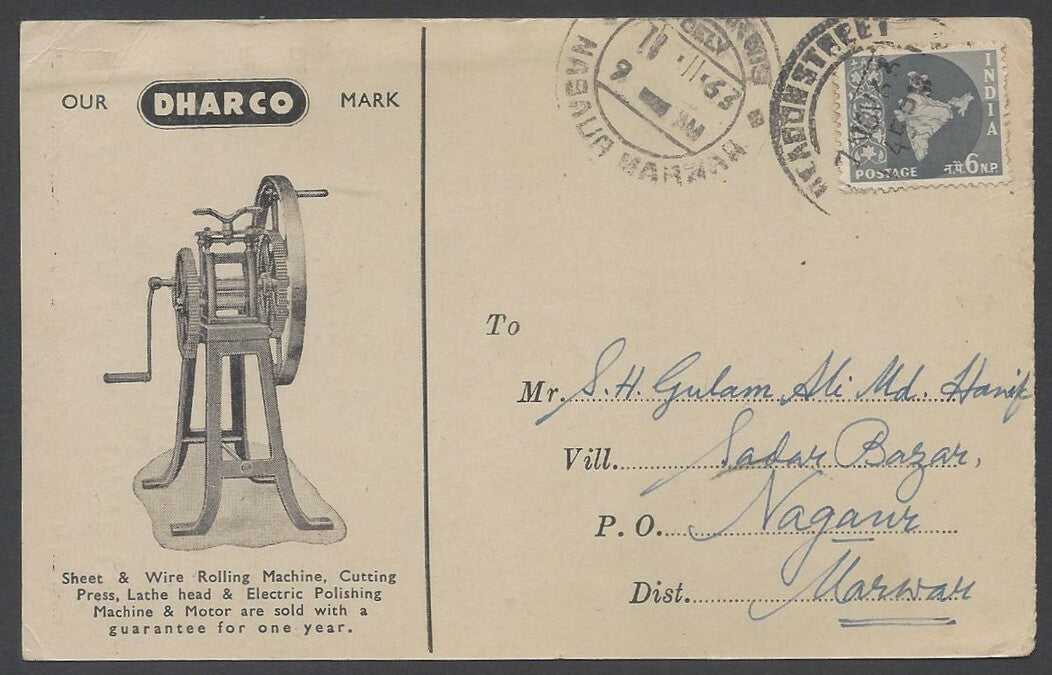 OUR DHARCO MARK
Sheet & Wire Rolling Machine, Cutting
Press, Lathe head & Electric Polishing
Machine & Motor are sold with a
guarantee for one year.
DELY
11.11.63
9 AM
MARWAR
BEADON STREET
INDIA
POSTAGE न.पै. 6 N.P.
To
Mr. S. H. Gulam Ali Md. Hanif
Vill. Sadar Bazar,
P. O. Nagaur
Dist. Marwar